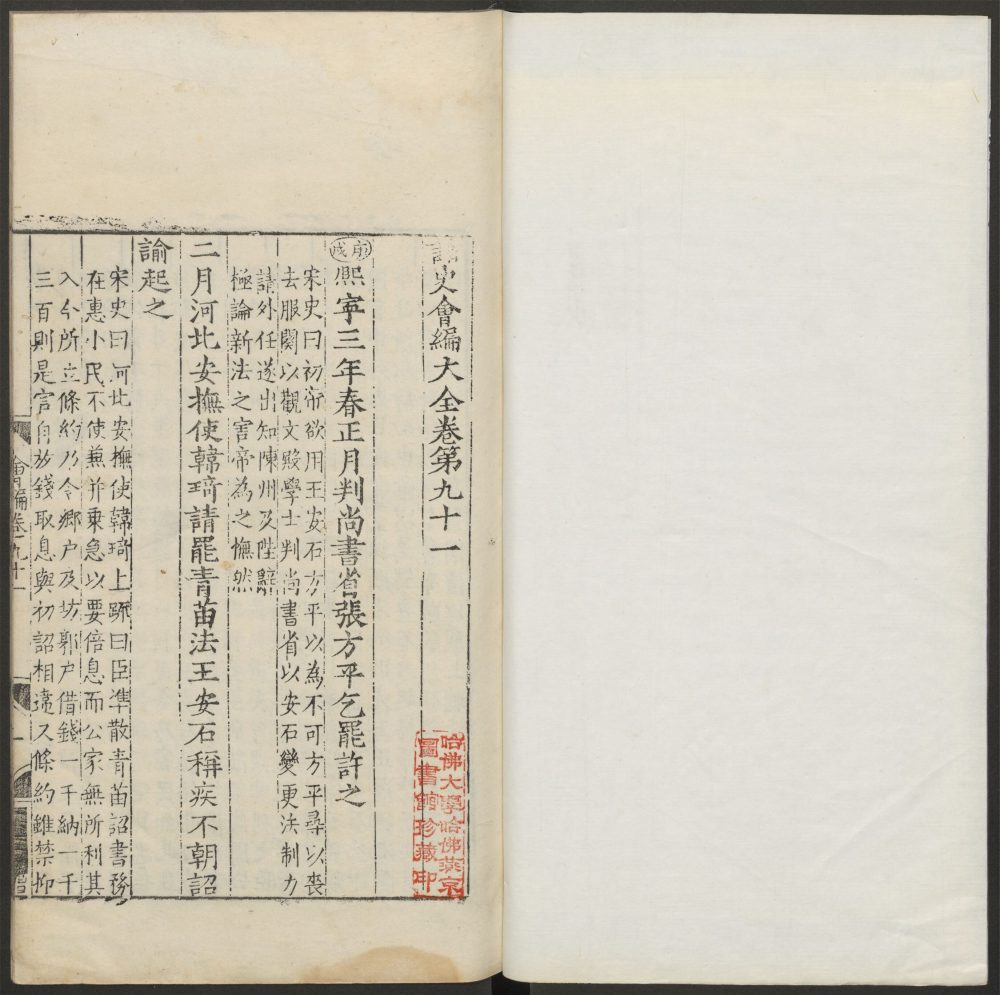 史會編大全卷第九十一
庚戌熙寧三年春正月判尚書省張方平乞罷許之
宋史曰初帝欲用王安石方平以為不可方平尋以喪
去服闋以觀文殿學士判尚書省以安石變更法制力
請外任遂出知陳州及陛辭
極論新法之害帝為之憮然
二月河北安撫使韓琦請罷青苗法王安石稱疾不朝詔
諭起之
宋史曰河北安撫使韓琦上疏曰臣準散青苗詔書務
在惠小民不使兼并乗急以要倍息而公家無所利其
入今所立條約乃令鄉户及坊郭户借錢一千納一千
三百則是官自放錢取息與初詔相違又條約雖禁抑
會編卷九十一
一
哈佛大學哈佛燕京
圖書館珍藏印